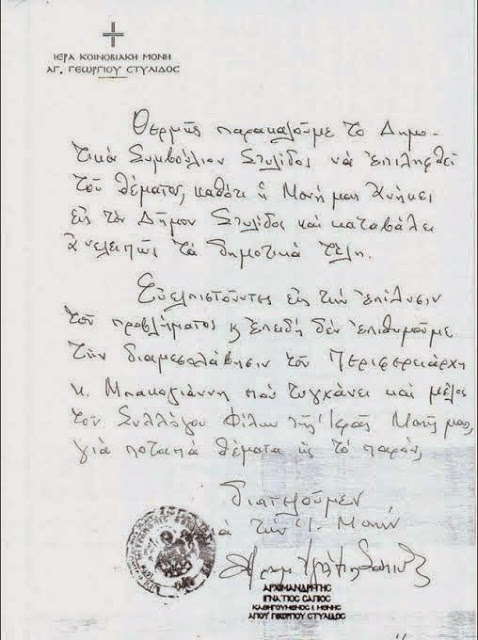 ΙΕΡΑ ΚΟΙΝΟΒΙΑΚΗ ΜΟΝΗ
ΑΓ. ΓΕΩΡΓΙΟΥ ΣΤΥΛΙΔΟΣ
Θερμῶς παρακαλοῦμε τὸ Δημο-
τικὸ Συμβούλιον Στυλίδος νὰ ἐπιληφθεῖ
τοῦ θέματος, καθότι ἡ Μονή μας ἀνήκει
εἰς τὸν Δῆμον Στυλίδος καὶ καταβάλει
ἀνελειπῶς τὰ δημοτικὰ τέλη.
Εὐελπιστοῦντες εἰς τὴν ἐπίλυσιν
τοῦ προβλήματος κ ἐπειδὴ δὲν ἐπιθυμοῦμε
τὴν διαμεσολάβησιν τοῦ Περιφερειάρχη
κ. Μπακογιάννη ποὺ τυγχάνει καὶ μέλος
τοῦ Συλλόγου Φίλων τῆς Ἱερᾶς Μονῆς μας,
γιὰ ποταπὰ θέματα ὡς τὸ παρόν,
διατελοῦμεν
διὰ τὴν Ἱ. Μονὴν
ΑΡΧΙΜΑΝΔΡΙΤΗΣ
ΙΓΝΑΤΙΟΣ ΣΑΠΙΟΣ
ΚΑΘΗΓΟΥΜΕΝΟΣ Ι. ΜΟΝΗΣ
ΑΓΙΟΥ ΓΕΩΡΓΙΟΥ ΣΤΥΛΙΔΟΣ